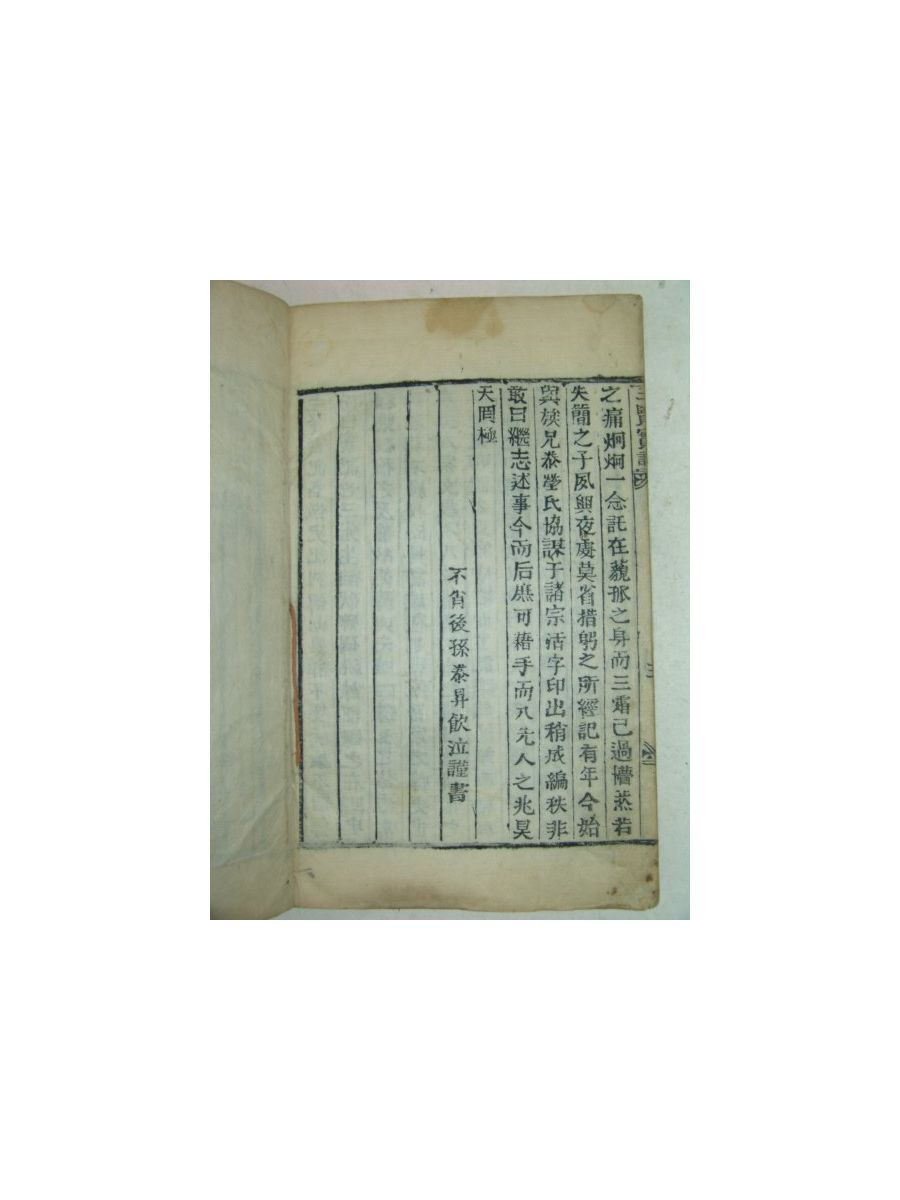 三賢實記
之痛炯炯一念託在藐孤之身而三霜已過懵然若
失簡之子夙興夜處莫省措躬之所經記有年今始
與族兄泰瑩氏協謀于諸宗活字印出稍成編秩非
敢曰繼志述事今而后庶可藉手而入先人之兆昊
天罔極
不肖後孫泰昇飮泣謹書